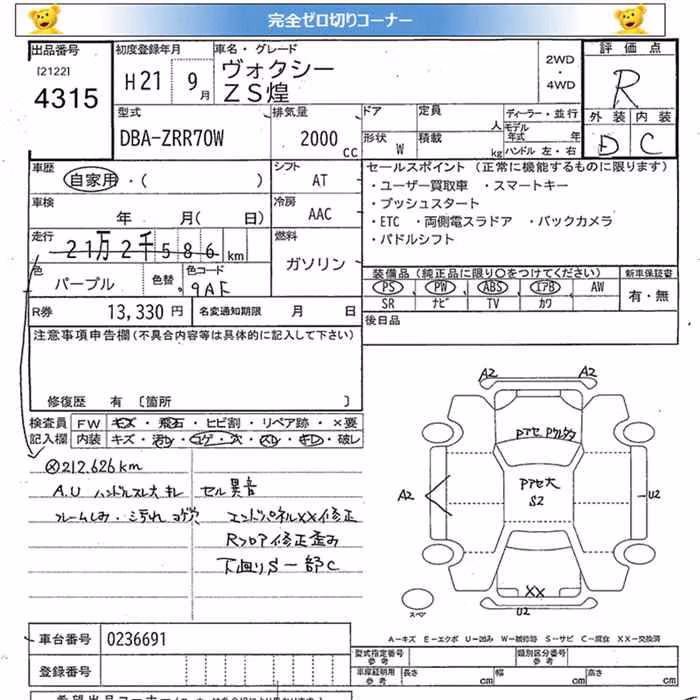 完全ゼロ切りコーナー
出品番号 初度登録年月 車名・グレード 評価点
[2122] 4315 H21 9月 ヴォクシー 2WD・4WD R
ZS煌
外装 内装
D C
型式 排気量 ドア 定員 人 ディーラー・並行
DBA-ZRR70W 2000 CC 形状 W 積載 kg モデル年式 年
ハンドル 左・右
車歴 自家用・( ) シフト AT
セールスポイント (正常に機能するものに限ります)
・ユーザー買取車 ・スマートキー
・プッシュスタート
・ETC ・両側電スラドア ・バックカメラ
・パドルシフト
車検 年 月( 日) 冷房 AAC
走行 21万2千586km 燃料 ガソリン
色 パープル 色替 色コード 9AF
装備品 (純正品に限り○をつけてください) 新車保証書
PS PW ABS エアB AW 有・無
SR ナビ TV カワ
R券 13,330円 名変通知期限 月 日 後日品
注意事項申告欄(不具合内容等は具体的に記入して下さい)
修復歴 有 〔箇所 〕
検査員記入欄 FW キズ・飛石・ヒビ割・リペア跡・×要
内装 キズ・汚レ・コゲ・穴・スレ・キレ・破レ
※212.626km
A.U ハンドルスレ大キレ セル異音
フレームしみ・ミ汚れコゲ穴 エンドパネルXX修正
Rフロア修正歪み
下廻りS一部C
A2 A2
Pアセ Pクルタタ
Pアセ大
S2
A2 U2
XX
U2
スペア
A-キズ E-エクボ U-凹み W-補修跡 S-サビ C-腐食 XX-交換済
車台番号 0236691
型式指定番号 参考 類別区分番号 参考
登録番号
車庫証明用 参考 長さ cm 幅 cm 高さ cm
希望出品コーナー